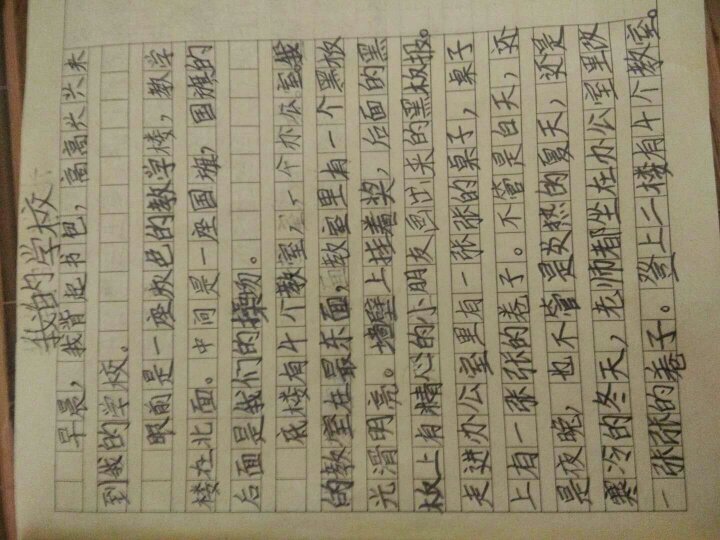 我的学校
早晨，我背起书包，高高兴兴来
到我的学校。
眼前是一座灰色的教学楼，教学
楼在北面。中间是一座国旗，国旗的
后面是我们的操场。
底楼有4个教室，一个办公室我
的教室在最东面，教室里有一个黑板
光滑明亮。墙壁上挂着奖，后面的黑
板上有精心的小朋友画出来的黑板报。
走进办公室里有一张张的桌子，桌子
上有一张张的卷子。不管是白天，还
是夜晚，也不管是炎热的夏天，还是
寒冷的冬天，老师都坐在办公室里改
一张张的卷子。登上二楼有4个教室。